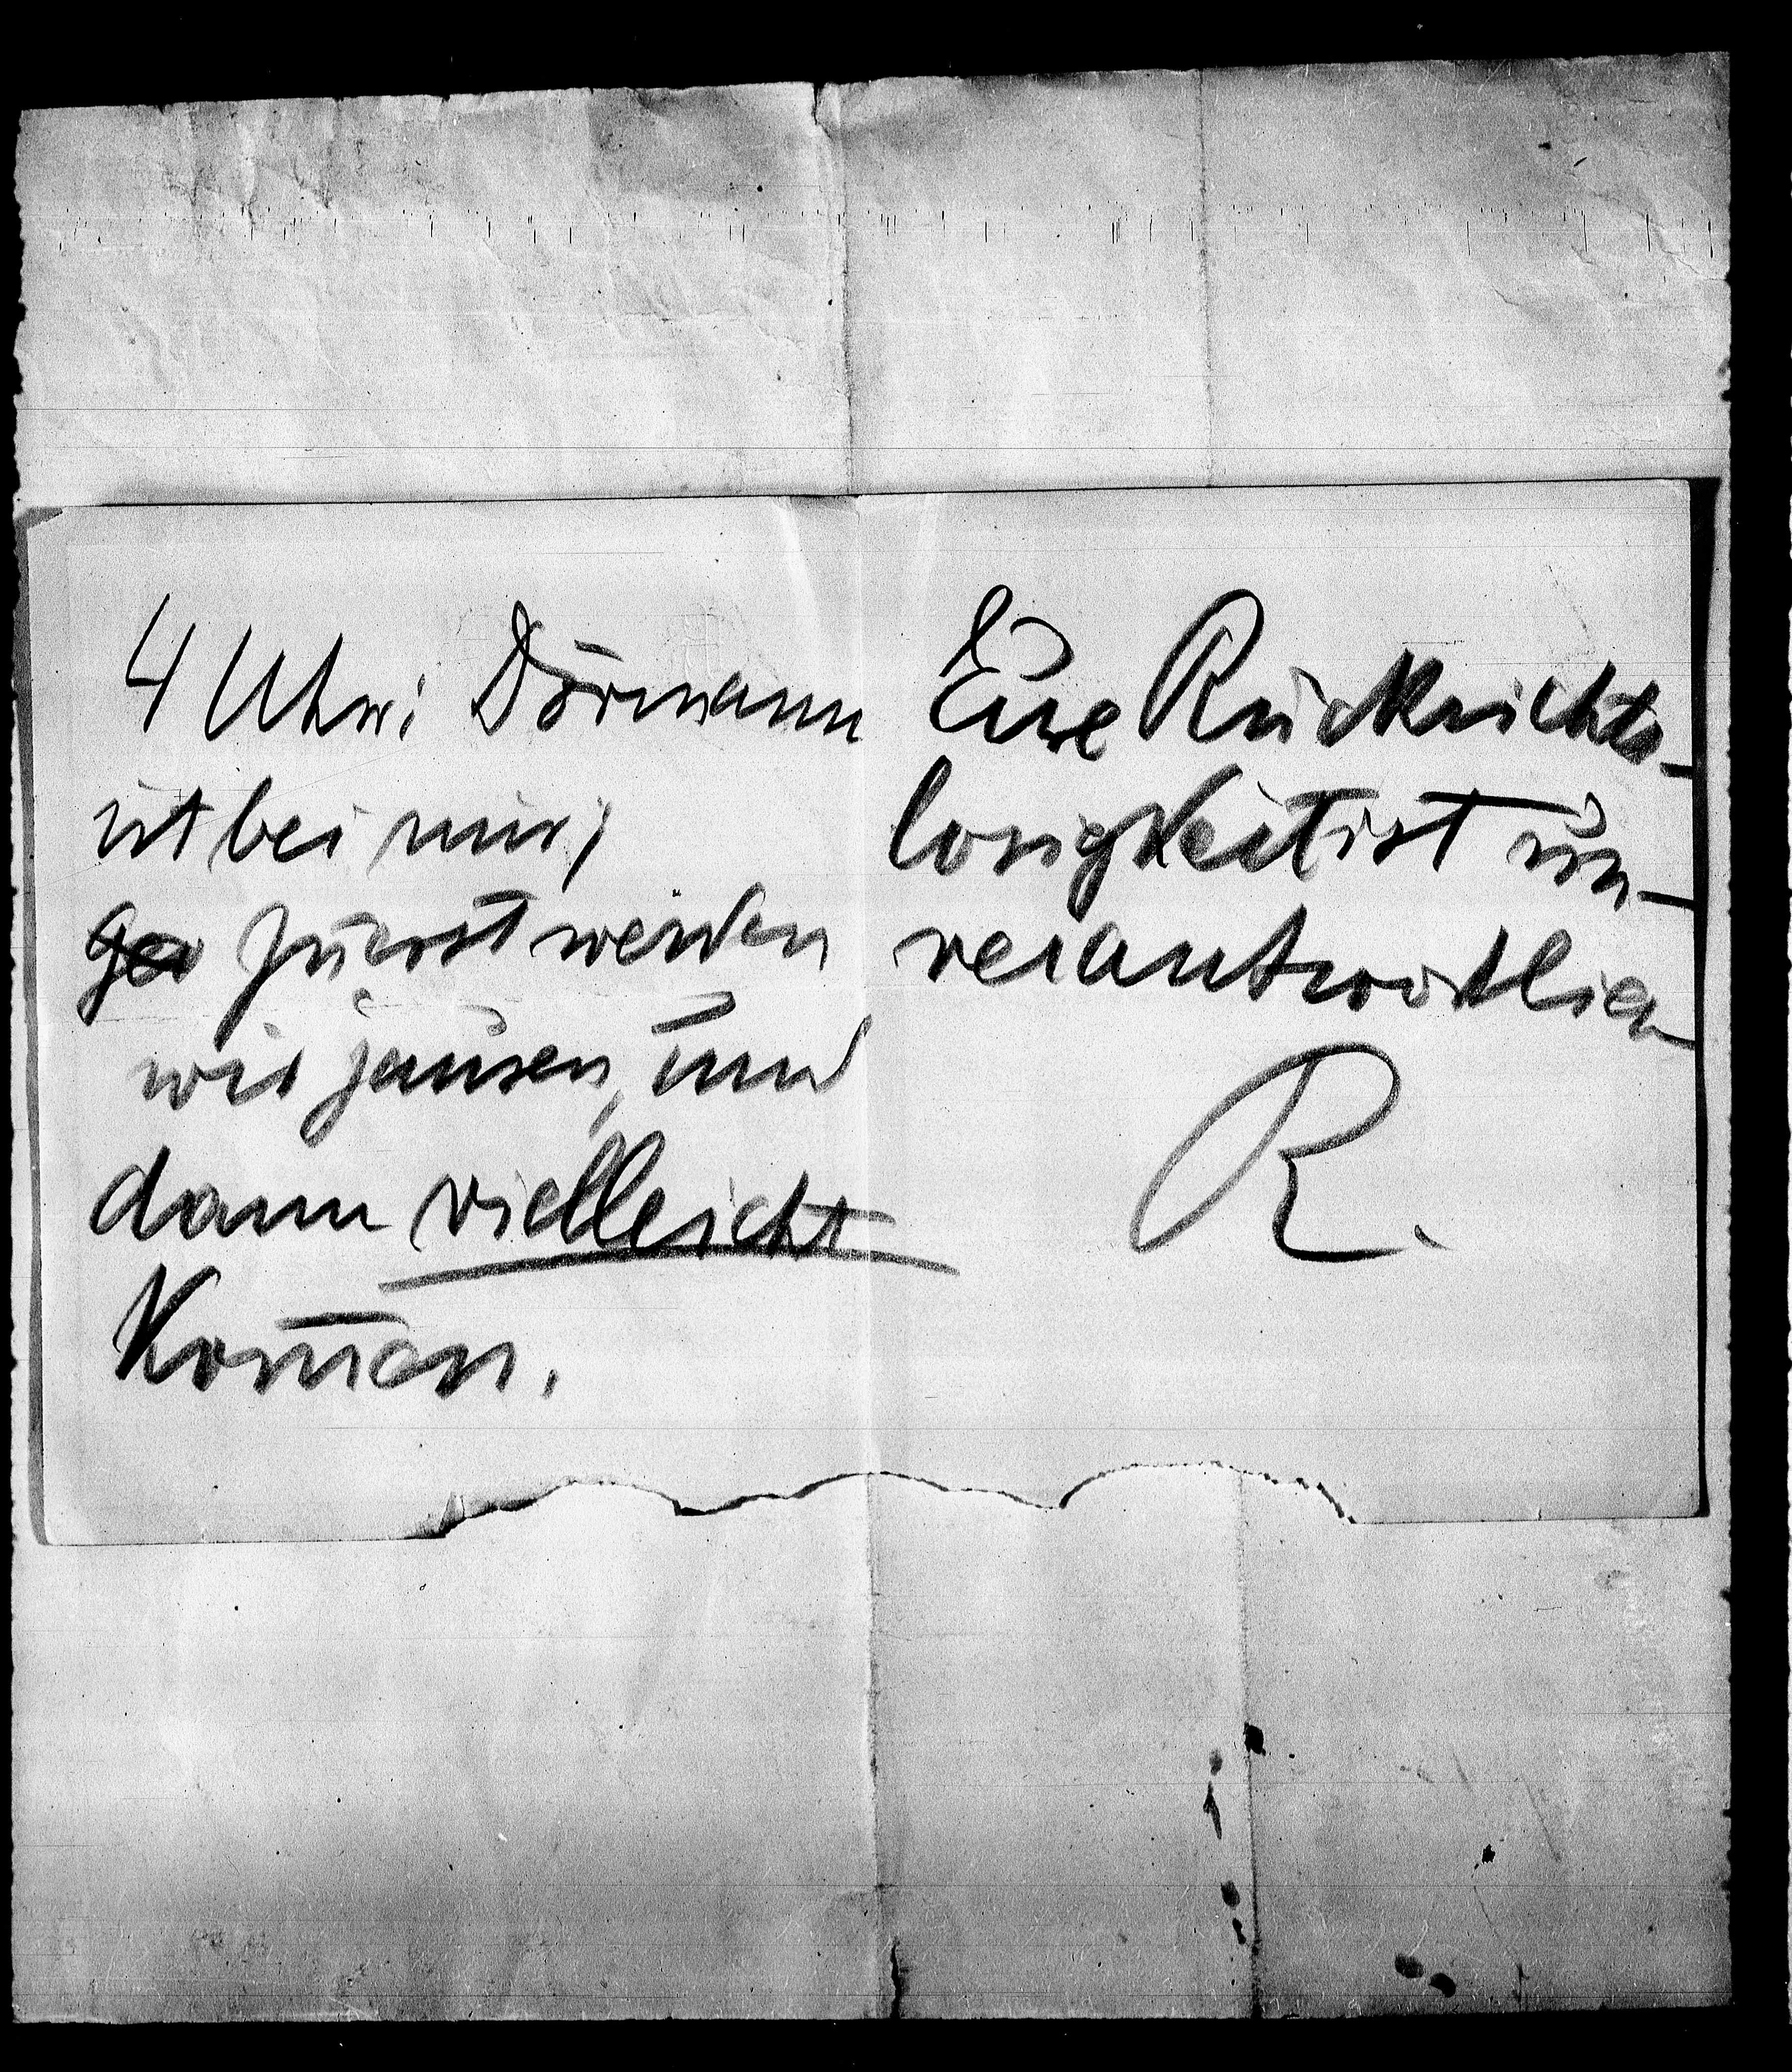 4 Uhr: Dörmann
ist bei mir;
zuerst werden
wir jausen, und
dann vielleicht
Kom̅en.
Eure Rücksichts-
losigkeit ist un-
verantwortlich
R.